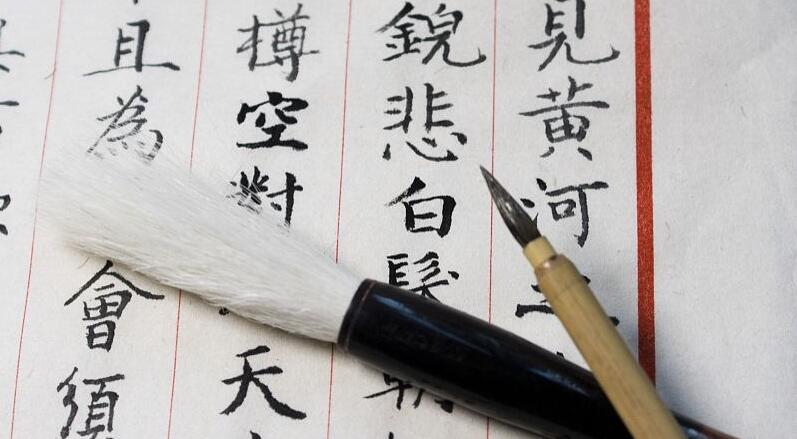 見黄河
鏡悲白髮
樽空對天
且為會須